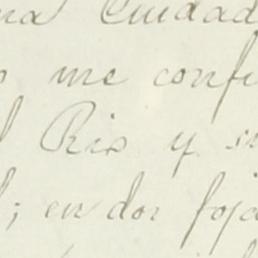 na Ciudad
me confi
l Rio y
; en dos foja